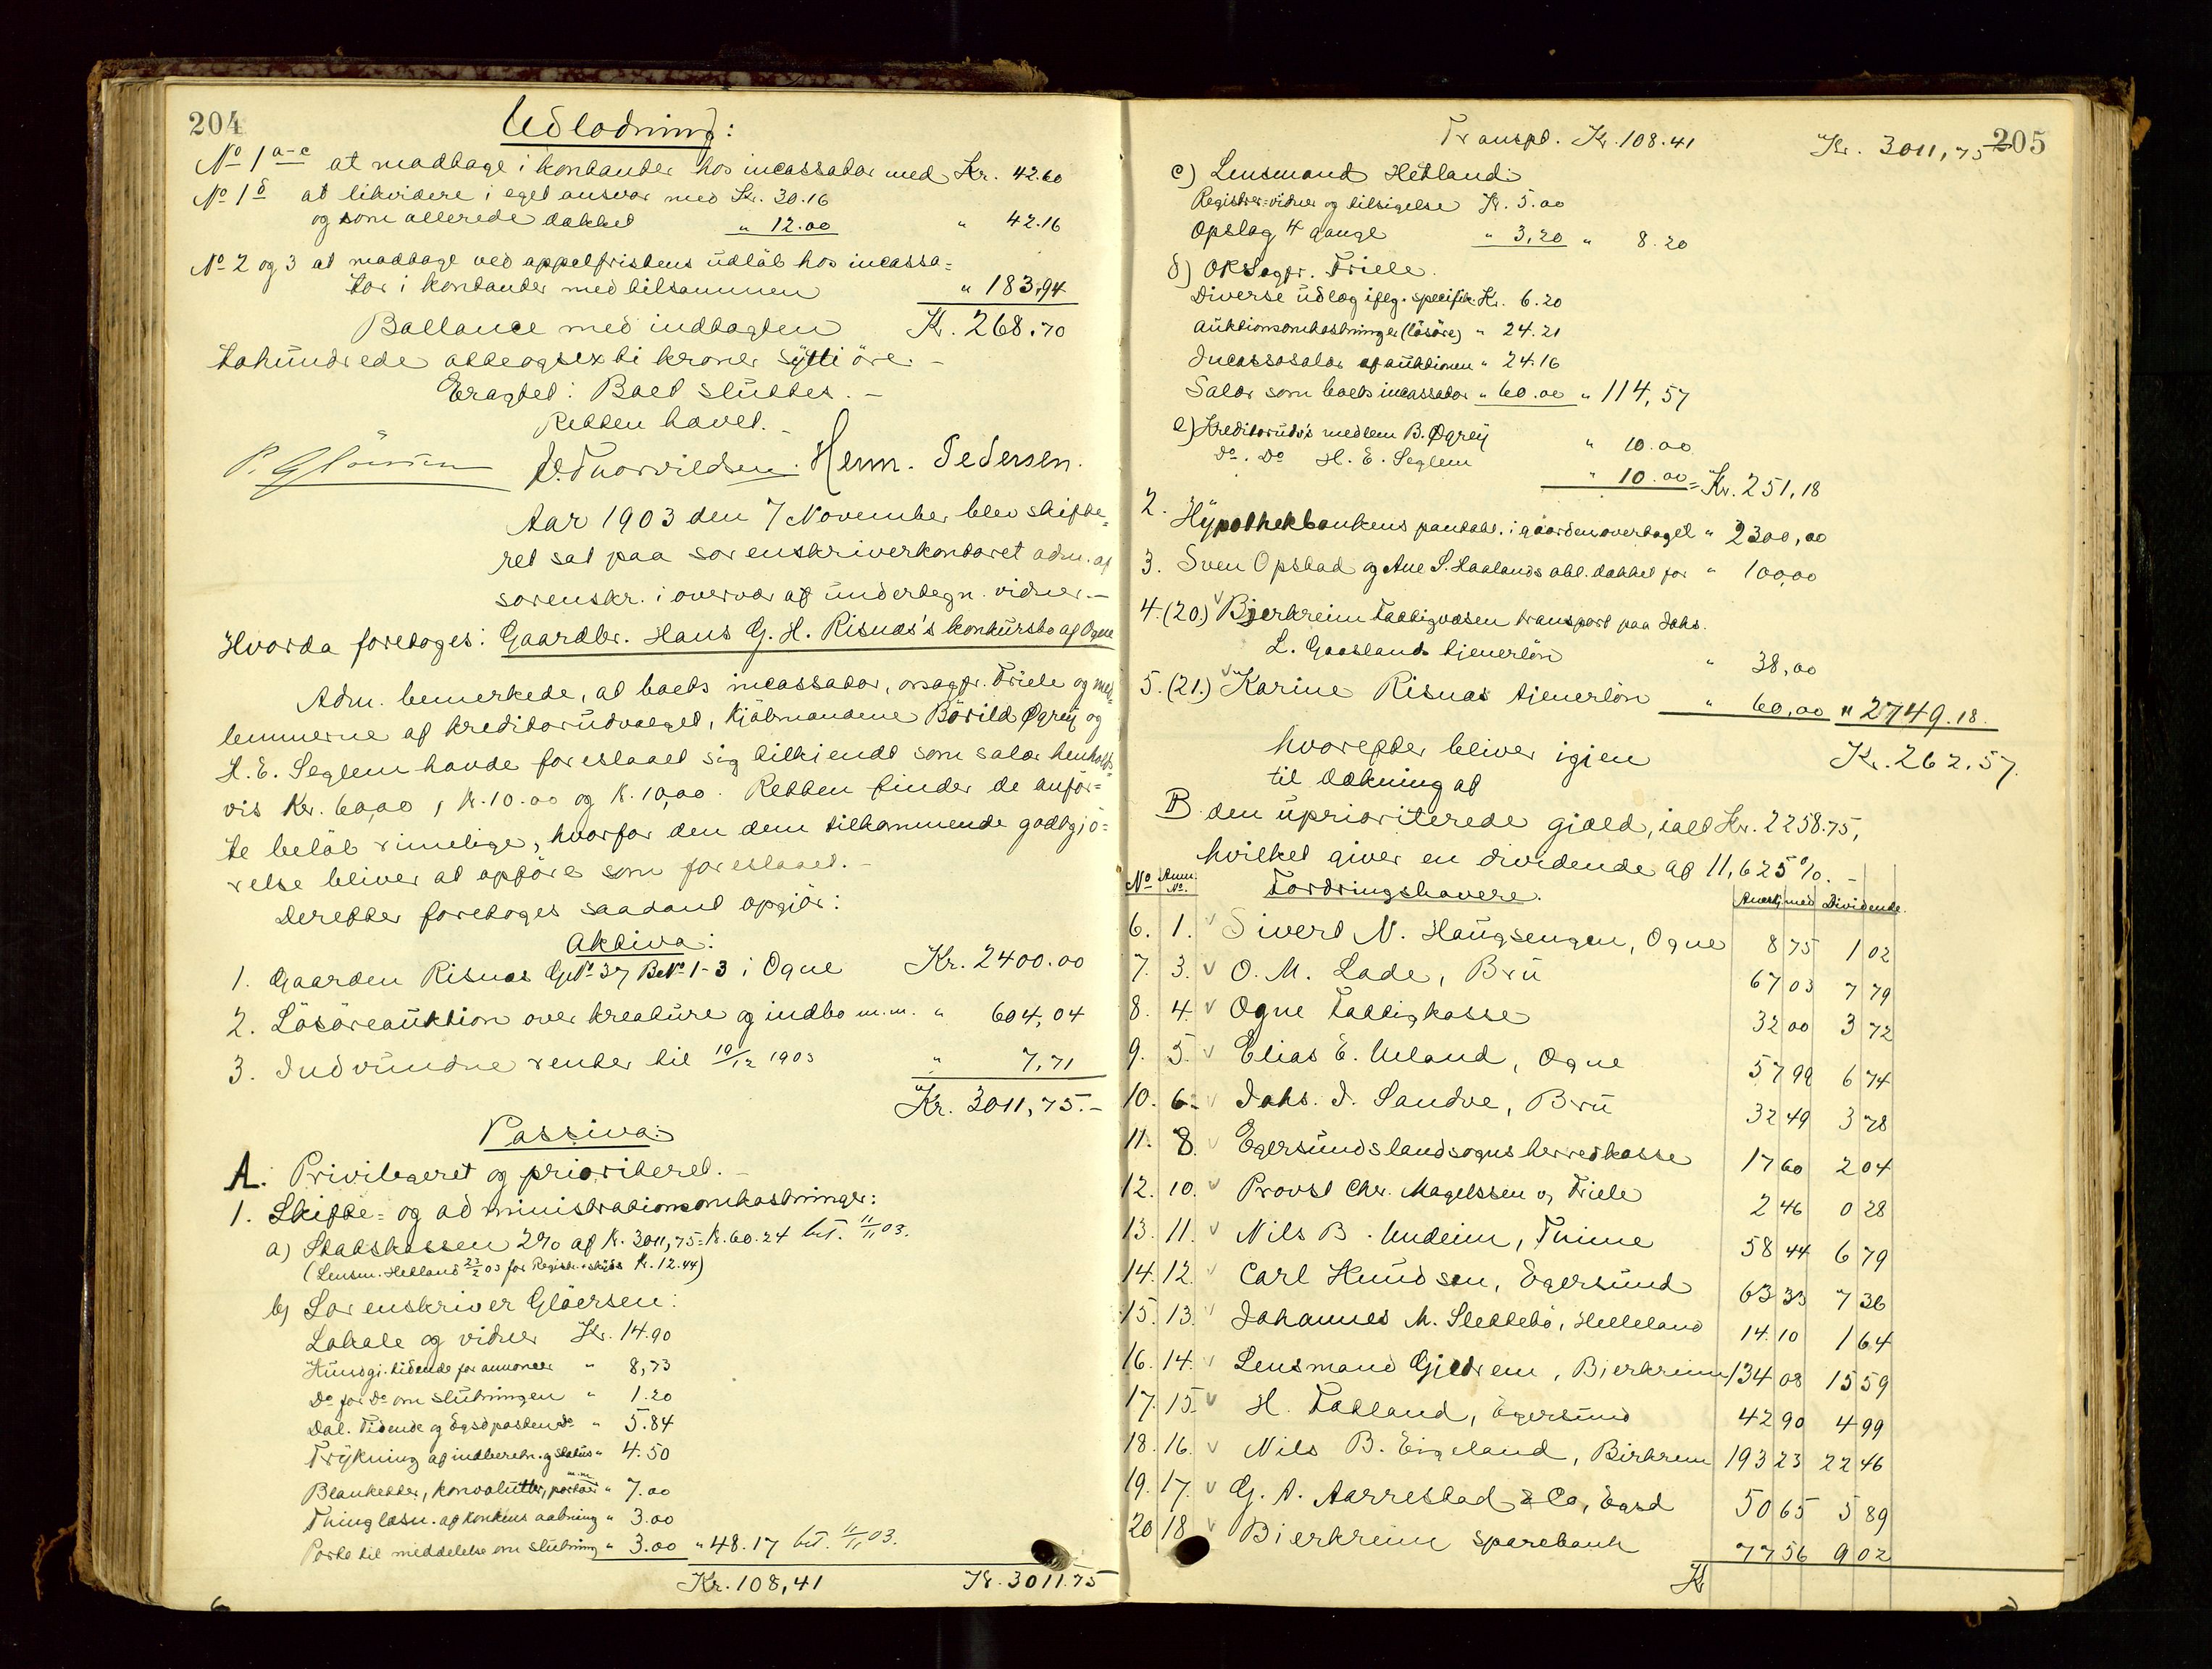 204
Udlodning:
No 1 a-c at modtage i kontanter hos incassator med Kr. 42.60
No 1 d at likvidere i eget ansvar med Kr. 30.16
og som allerede dækket " 12.00 " 42.16
No 2 og 3 at modtage ved appelfristens udløb hos incassa=
tor i kontanter med tilsammen " 183,94
Ballance med indtægten Kr. 268.70
tohundrede otteogsexti kroner sytti øre. -
Eragtet: Boet sluttes. -
Retten hævet. -
D. Thorvildsen. Herm. Pedersen.
Aar 1903 den 7 November blev skifte=
ret sat paa sorenskriverkontoret adm. af
sorenskr. i overvær af undertegn. vidner. -
Hvorda foretoges: Gaardbr. Hans G. H. Risnæs's konkursbo af Ogne
Adm. bemerkede, at boets incassator, orsagfr. Friele og med=
lemmerne af kreditorudvalget, kjøbmændene Børild Øgreij og
H. E. Seglem havde foreslaaet sig tilkjendt som salær henholds=
vis Kr. 60,00, Kr. 10.00 og K. 10,00. Retten finder de anfør=
te beløb rimelige, hvorfor den dem tilkommende godtgjø=
relse bliver at opføre som foreslaaet. -
Derefter foretoges saadant opgjør:
Aktiva:
1. Gaarden Risnæs GNo 37 BNo 1-3 i Ogne Kr. 2400.00
2. Løsøreauktion over kreature og indbo m.m. " 604,04
3. Indvundne renter til 10/12 1903 " 7,71
Kr. 3011,75.-
Passiva:
A. Privilegeret og prioriteret. -
1. Skifte= og administrationsomkostninger:
a) Statskassen 2% af K. 3011,75 = K. 60.24 bet. 11/11 03.
(Lensm. Hetland 23/2 03 for Registr. + skyds K. 12.44)
b) Sorenskriver Gløersen:
Lokale og vidner Kr. 14.90
Kundgj. tidende for annoncer " 8,73
Do for Do om slutningen " 1.20
Dal. Tidende og Egsdposten Do " 5.84
Trykning af indberetn. og status " 4.50
Blanketter, konvolutter, porto m.m. " 7.00
Thinglæsn. af konkurs aabning " 3.00
Porto til meddelelse om slutning " 3.00 " 48.17 bet. 11/11 03.
Kr. 108,41 Kr. 3011.75
205
Transpt. Kr. 108.41 Kr. 3011,75
c) Lensmand Hetland:
Registrer=vidner og tilsigelse Kr. 5.00
Opslag 4 gange " 3,20 " 8.20
d) ORSagfr. Friele.
Diverse udlæg iflg. specifik. Kr. 6.20
Auktionsomkostninger (løsøre) " 24.21
Incassosalær af auktionen " 24.16
Salær som boets incassator " 60.00 " 114,57
e) Kreditorudv's medlem B. Øgreij " 10.00
Do. Do H. E. Seglem " 10.00 = Kr. 251,18
2. Hypothekbankens pantobl. i gaarden overtaget " 2300,00
3. Sven Opstad og Ane S. Haalands obl. dækket for " 100,00
4. (20.) Bjerkreim Fattigvæsen transport paa Johs.
L. Gaaslands tjenerløn " 38,00
5. (21.) Karine Risnæs tjenerløn " 60,00 " 2749.18.
hvorefter bliver igjen Kr. 262.57.
til dækning af
B den uprioriterede gjæld, ialt Kr. 2258.75,
hvilket giver en dividende af 11,625%. -
No Anm. No. Fordringshavere. Anerkj. med Dividende.
6. 1. Sivert N. Haugsengen, Ogne 8 75 1 02
7. 3. O. M. Lade, Bru 67 03 7 79
8. 4. Ogne Fattigkasse 32 00 3 72
9. 5. Elias E. Ueland, Ogne 57 99 6 74
10. 6. Johs. J. Sandve, Bru 32 49 3 78
11. 8. Egersunds landsogns herredkasse 17 60 2 04
12. 10. Provst Chr. Magelssen og Friele 2 46 0 28
13. 11. Nils B. Undeim, Thime 58 44 6 79
14. 12. Carl Knudsen, Egersund 63 33 7 36
15. 13. Johannes M. Slettebø, Helleland 14 10 1 64
16. 14. Lensmand Gjedrem, Bjerkreim 134 08 15 59
17. 15. H. Tatland, Egersund 42 90 4 99
18. 16. Nils B. Eigeland, Birkrem 193 23 22 46
19. 17. G. A. Aarrestad & Co, Egsd 50 65 5 89
20 18 Bjerkreim sparebank 77 56 9 02
Kr